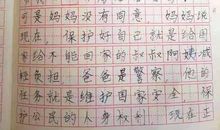 可是妈妈没有同意 妈妈说
现在，保护好自己就是给国
家给不能回家的叔叔阿姨减
轻负担 爸爸是警察 他的
任务就是维护国家安全 保
护公民的人身权利 现在正